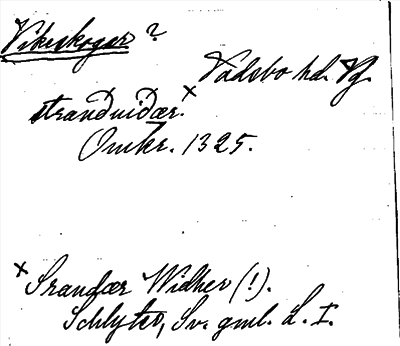 Vikeskogar ?
Vadsbo hd. Vg.
stranduiðær.x
Omkr. 1325.
x Srandær Widher (!).
Schlyter, Sv. gml. L. I.